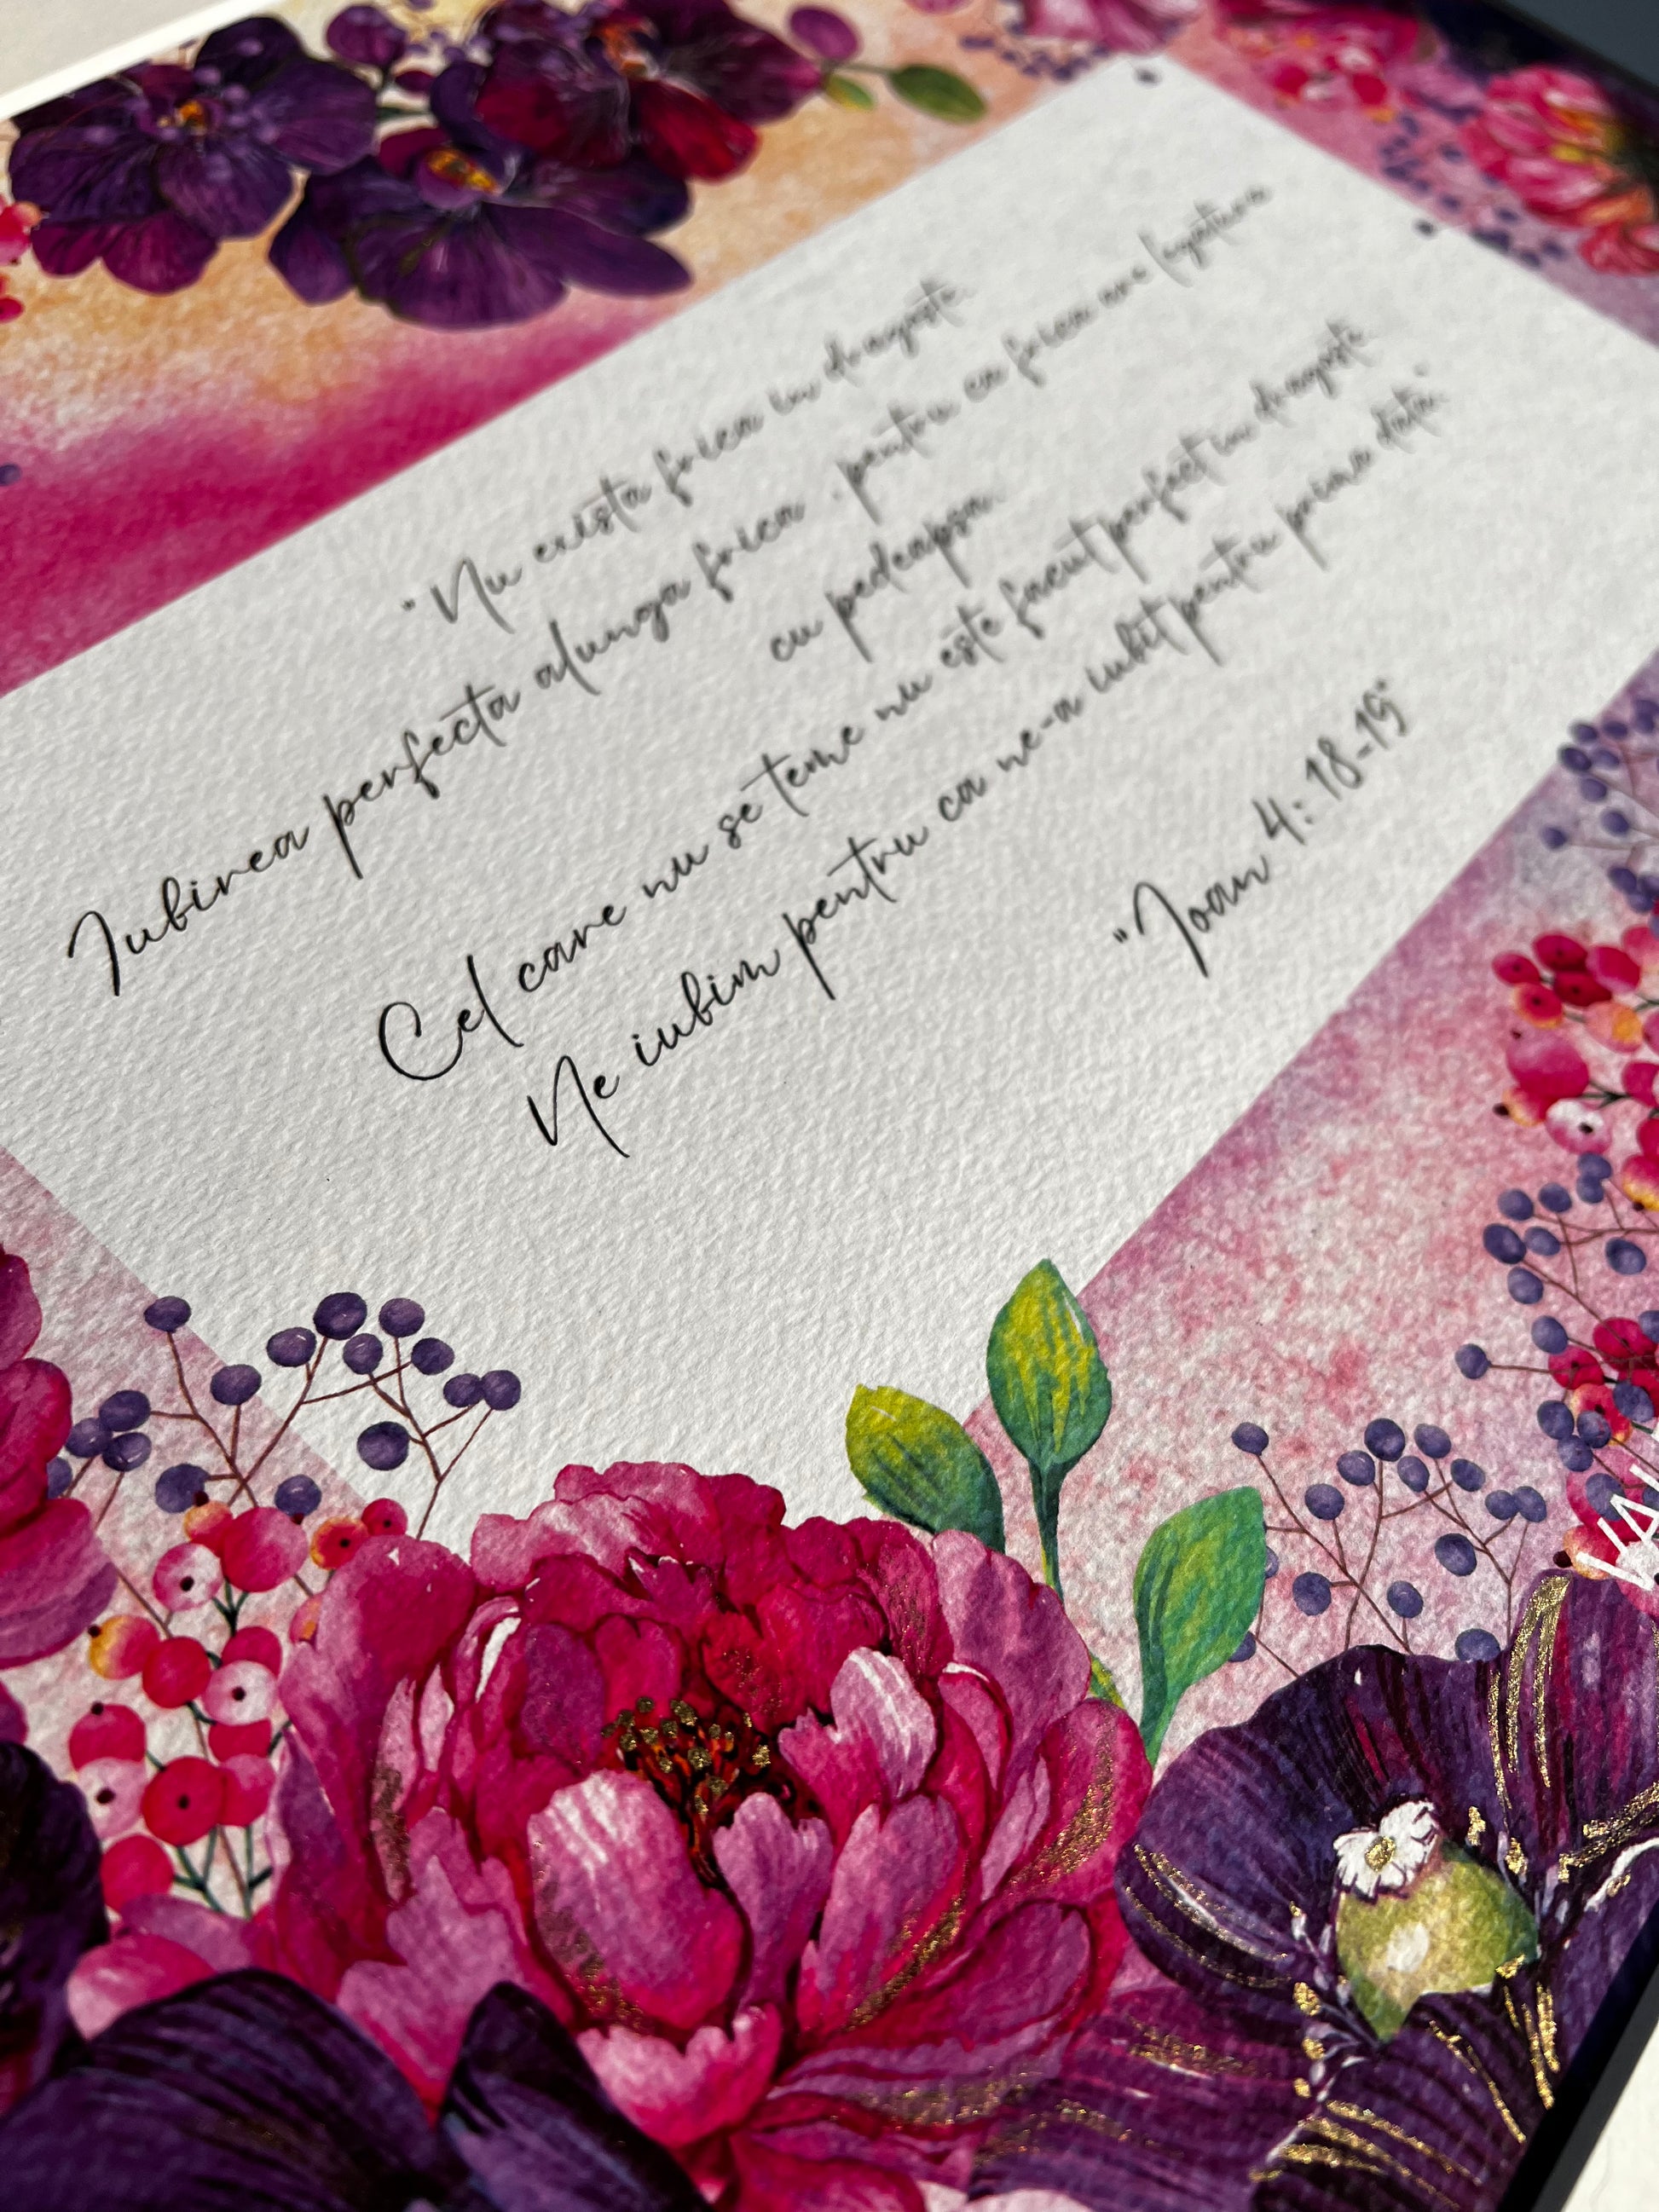 "Nu exista frica in dragoste.
Iubirea perfecta alunga frica , pentru ca frica are legatura
cu pedeapsa.
Cel care nu se teme nu este facut perfect in dragoste
Ne iubim pentru ca ne-a iubit pentru prima data."
"Ioan 4: 18-19"